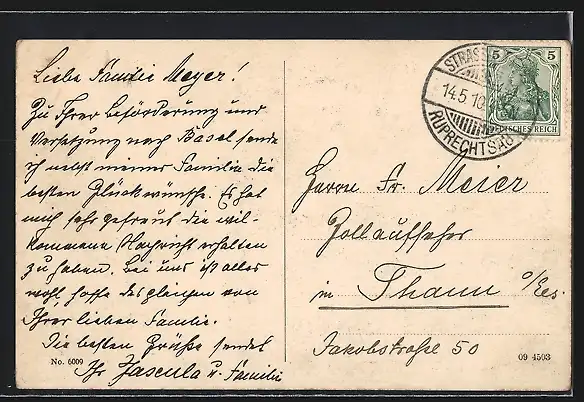 Liebe Familie Meyer!
Zu Ihrer Beförderung und
Versetzung nach Basel sende
ich nebst meiner Familie die
besten Glückwünsche. Es hat
mich sehr gefreut die wil-
kommene Nachricht erhalten
zu haben. Bei uns ist alles
wohl, hoffe desgleichen von
Ihrer lieben Familie.
Die besten Grüße sendet
Ihr Jascula u. Familie
No. 6009
STRASS
14.5.10
RUPRECHTSAU
5 5
DEUTSCHES REICH
Herrn Fr. Meier
Zollaufseher
in Thann o/Els.
Jakobstraße 50
09 4503